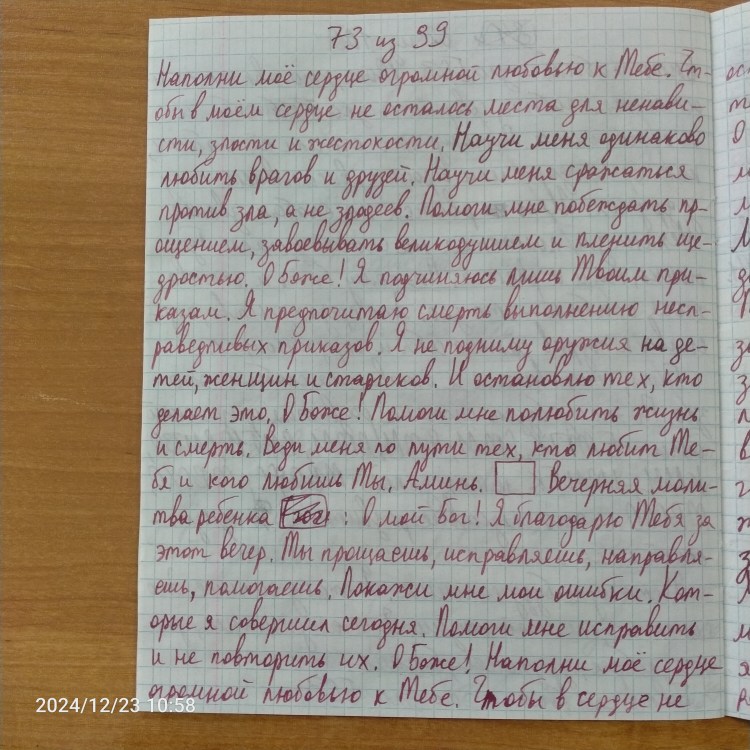 73 из 99
Наполни моё сердце огромной любовью к Тебе. Чт-
обы в моём сердце не осталось места для ненави-
сти, злости и жестокости. Научи меня одинаково
любить врагов и друзей. Научи меня сражаться
против зла, а не злодеев. Помоги мне побеждать пр-
ощением, завоевывать великодушием и пленить ще-
дростью. О Боже! Я подчиняюсь лишь Твоим при-
казам. Я предпочитаю смерть выполнению несп-
раведливых приказов. Я не подниму оружия на де-
тей, женщин и стариков. И остановлю тех, кто
делает это. О Боже! Помоги мне полюбить жизнь
и смерть. Веди меня по пути тех, кто любит Те-
бя и кого любишь Ты. Аминь. Вечерняя моли-
тва ребенка : О мой Бог! Я благодарю Тебя за
этот вечер. Ты прощаешь, исправляешь, направля-
ешь, помогаешь. Покажи мне мои ошибки. Кот-
орые я совершил сегодня. Помоги мне исправить
и не повторить их. О Боже! Наполни моё сердце
огромной любовью к Тебе. Чтобы в сердце не
2024/12/23 10:58